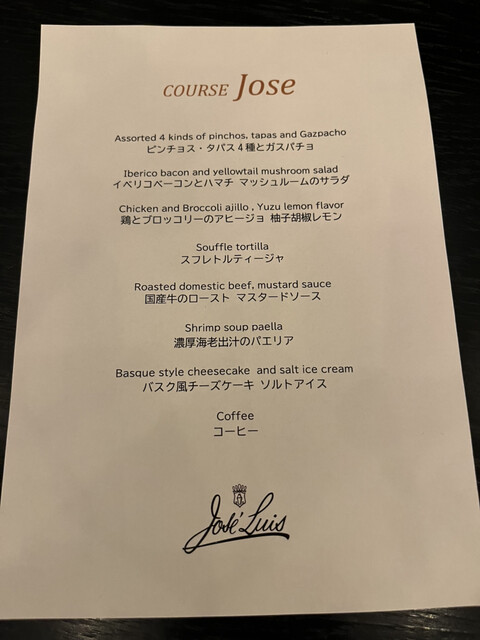 COURSE Jose
Assorted 4 kinds of pinchos, tapas and Gazpacho
ピンチョス・タパス 4 種とガスパチョ
Iberico bacon and yellowtail mushroom salad
イベリコベーコンとハマチ マッシュルームのサラダ
Chicken and Broccoli ajillo , Yuzu lemon flavor
鶏とブロッコリーのアヒージョ 柚子胡椒レモン
Souffle tortilla
スフレトルティージャ
Roasted domestic beef, mustard sauce
国産牛のロースト マスタードソース
Shrimp soup paella
濃厚海老出汁のパエリア
Basque style cheesecake and salt ice cream
バスク風チーズケーキ ソルトアイス
Coffee
コーヒー
José Luis